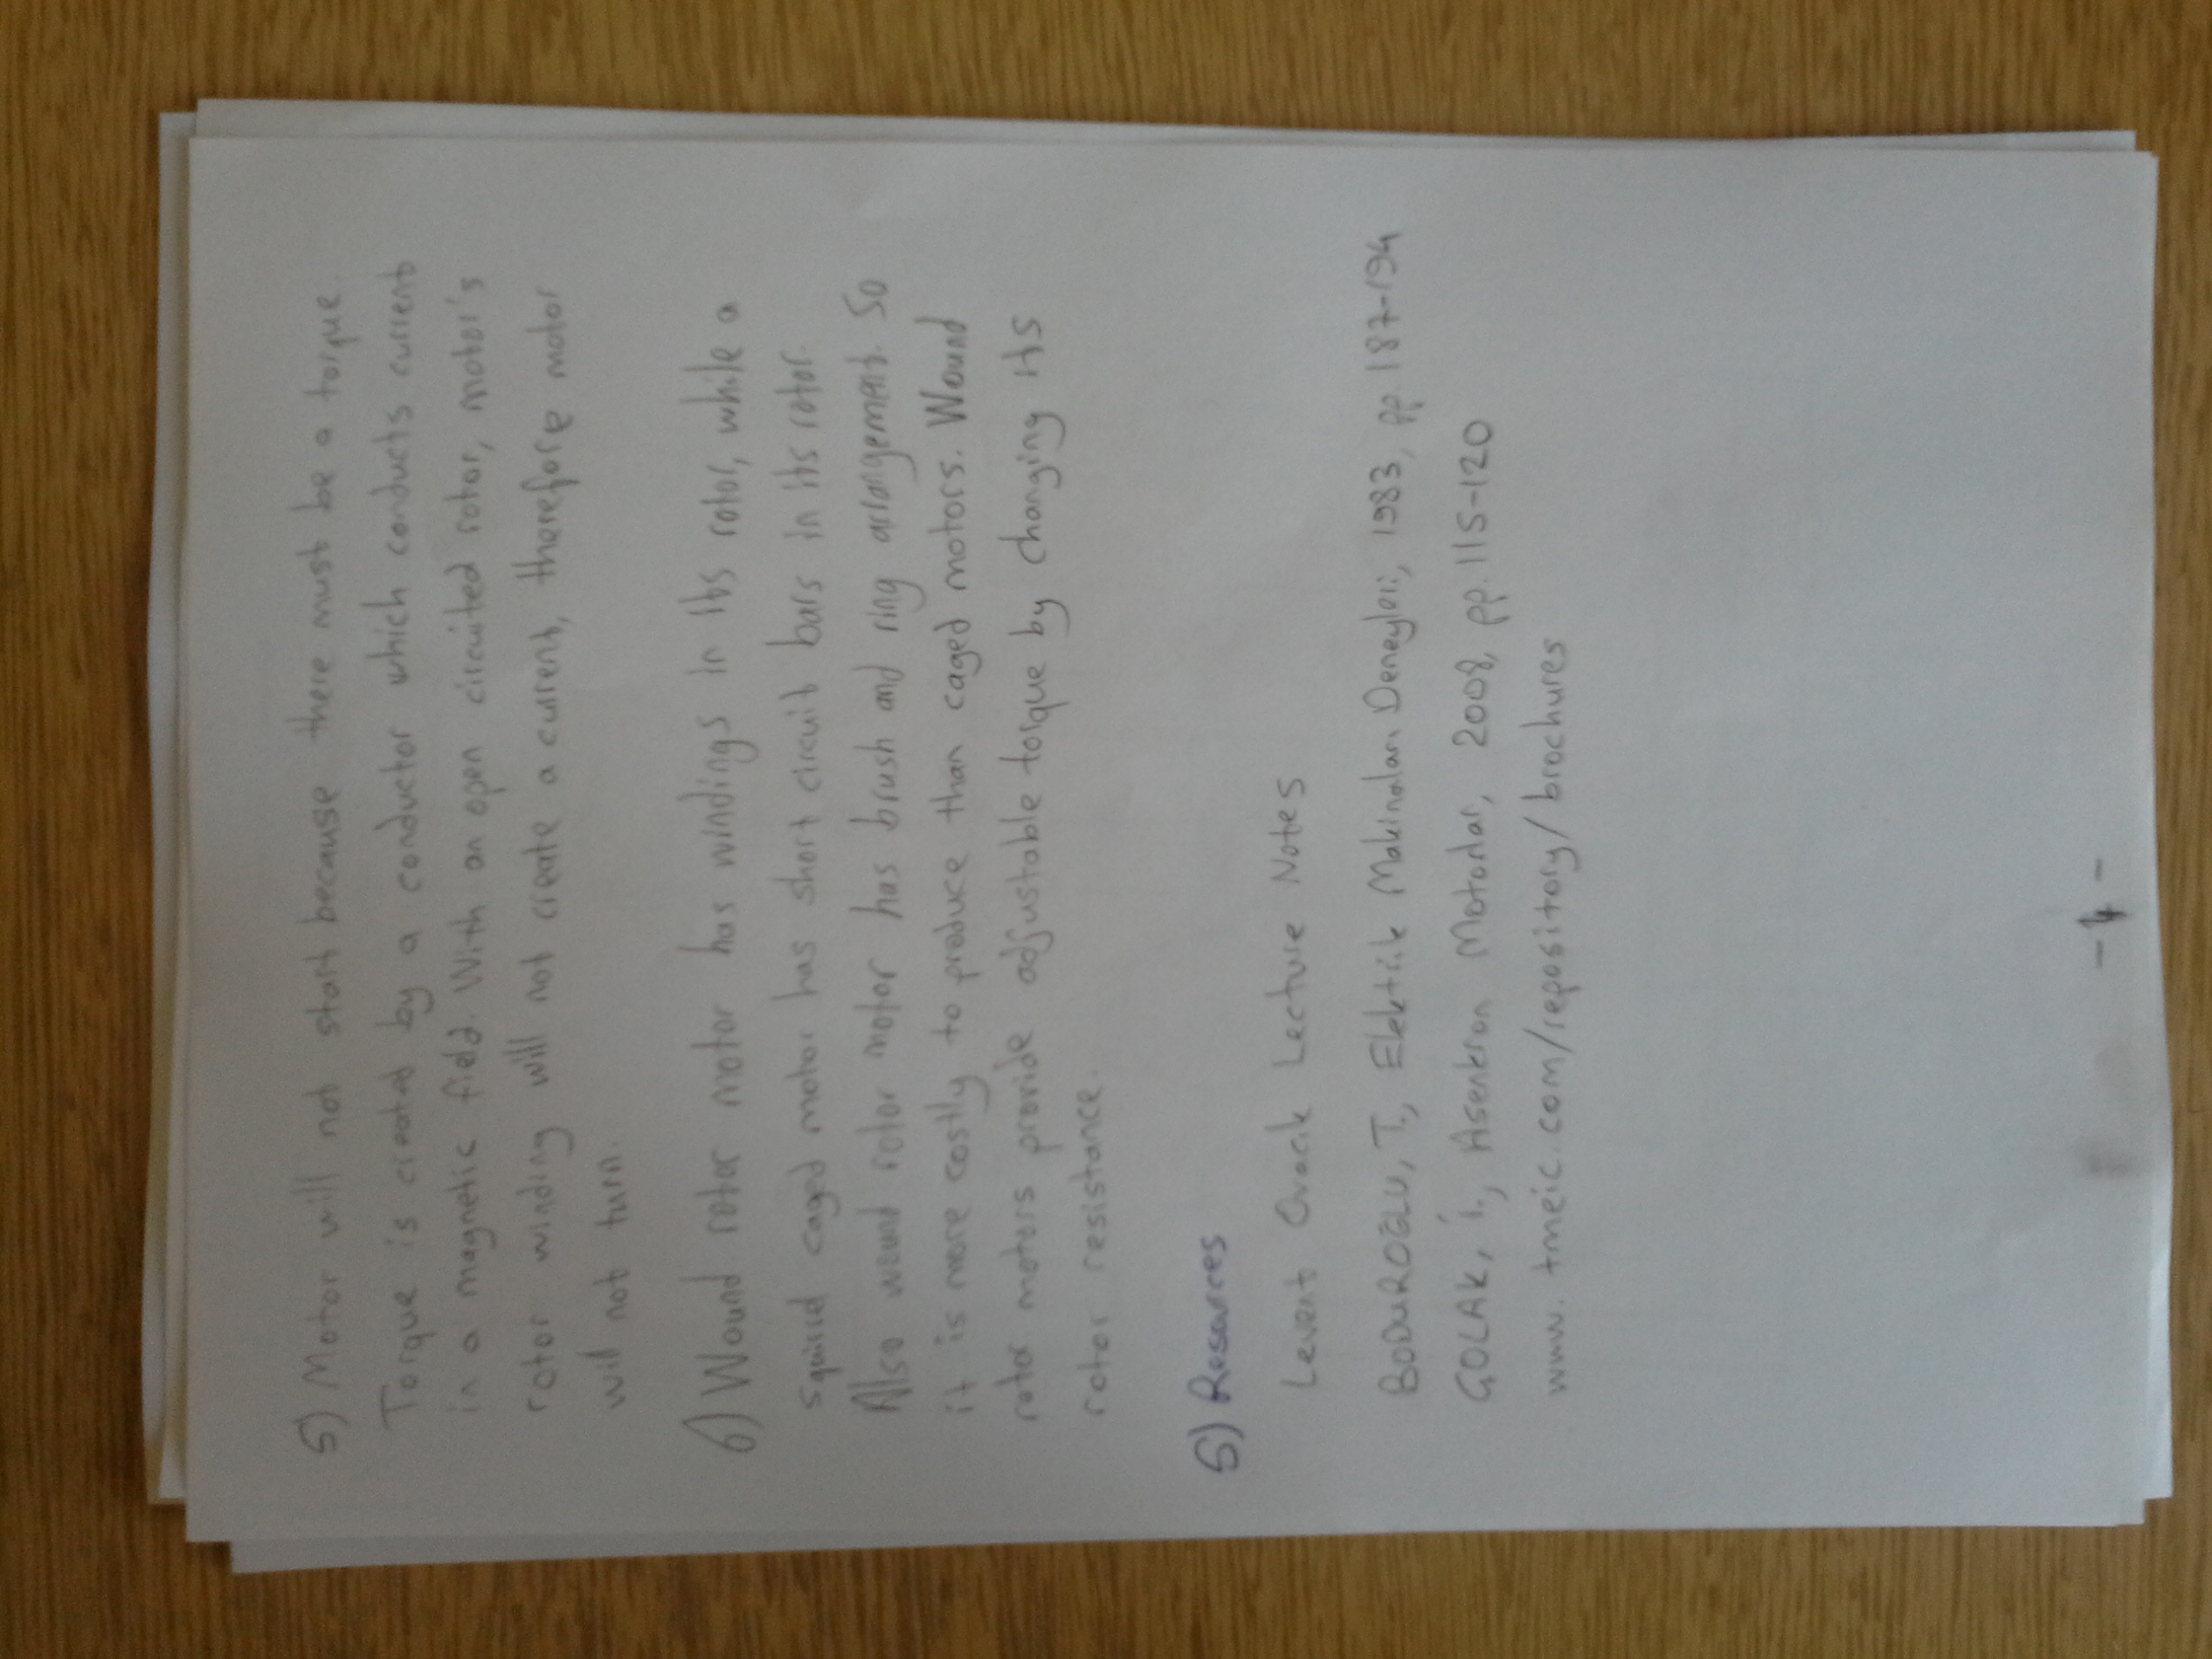 5) Motor will not start because there must be a torque.
Torque is created by a conductor which conducts current
in a magnetic field. With an open circuited rotor, motor's
rotor winding will not create a current, therefore motor
will not turn.
6) Wound rotor motor has windings in its rotor, while a
squirrel caged motor has short circuit bars in its rotor.
Also wound rotor motor has brush and ring arrangement. So
it is more costly to produce than caged motors. Wound
rotor motors provide adjustable torque by changing its
rotor resistance.
5) Resources
Levent Ovacık Lecture Notes
BODUROĞLU, T., Elektrik Makinaları Deneyleri, 1983, pp 187-194
ÇOLAK, İ., Asenkron Motorlar, 2008, pp. 115-120
www.tmeic.com/repository/brochures
-4-